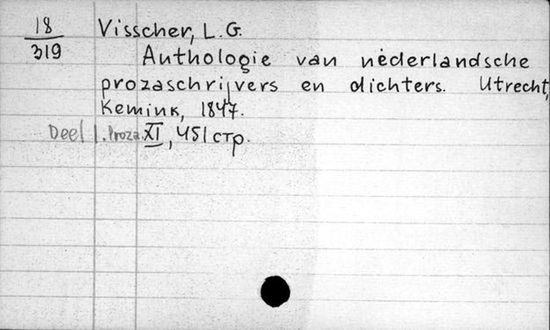 18 Visscher, L.G.
319 Anthologie van nederlandsche
prozaschrijvers en dichters. Utrecht,
Kemink, 1847.
Deel I. Proza. XI, 451 стр.